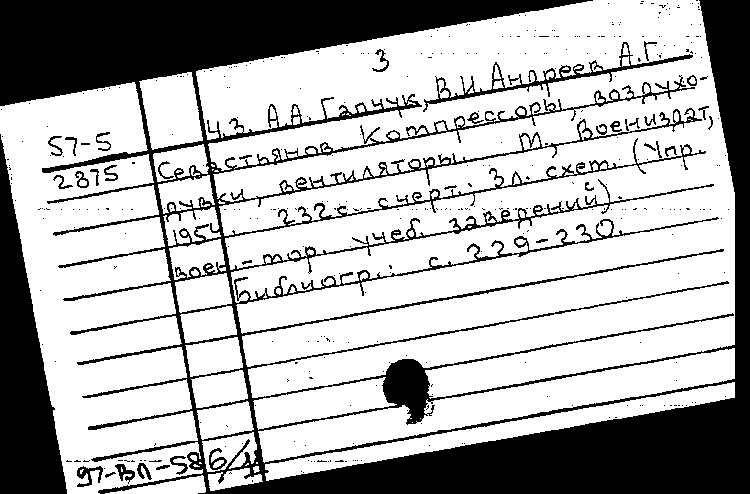 3
57-5
2875
Ч.З. А.А. Гапчук, В.И. Андреев, А.Г.
Севастьянов. Компрессоры, воздухо-
дувки, вентиляторы. М., Воениздат,
1954. 232с. с черт.; 3л. схем. (Упр.
воен.-мор. учеб. заведений).
Библиогр.: с. 229-230.
97-ВП-586/11